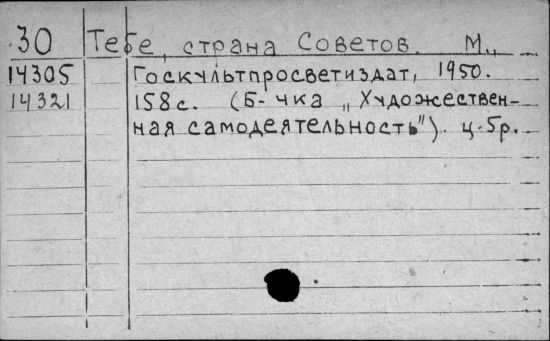 30 Тебе, страна Советов. М.,
14305 Госкультпросветиздат, 1950.
14321 158 с. (Б-чка „Художествен-
ная самодеятельность"). ц. 5р.